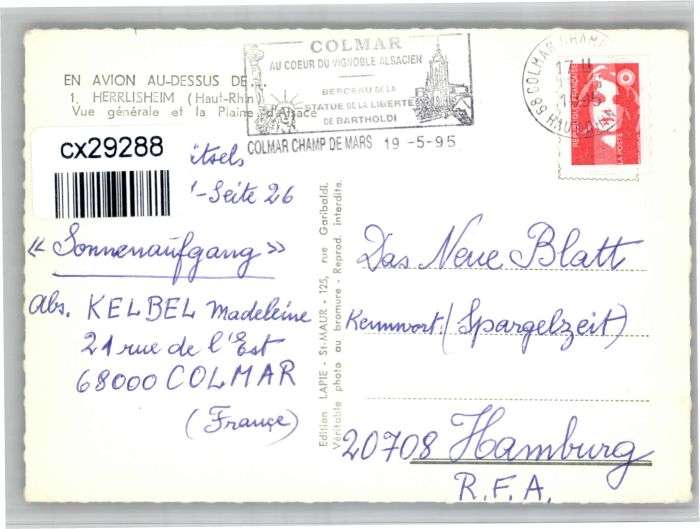 COLMAR
AU COEUR DU VIGNOBLE ALSACIEN
BERCEAU DE LA
STATUE DE LA LIBERTE
DE BARTHOLDI
COLMAR CHAMP DE MARS 19-5-95
68 COLMAR CHAMP
17 H
HAUT-RHIN
LA POSTE
EN AVION AU-DESSUS DE...
1. HERRLISHEIM (Haut-Rhin)
Vue générale et la Plaine d'Alsace
cx29288
itsels
-Seite 26
« Sonnenaufgang »
Abs. KELBEL Madeleine
21 rue de l'Est
68000 COLMAR
(France)
Edition LAPIE - St-MAUR - 125, rue Garibaldi.
Véritable photo au bromure - Reprod. interdite.
Das Neue Blatt
Kennwort: (Spargelzeit)
20708 Hamburg
R.F.A.